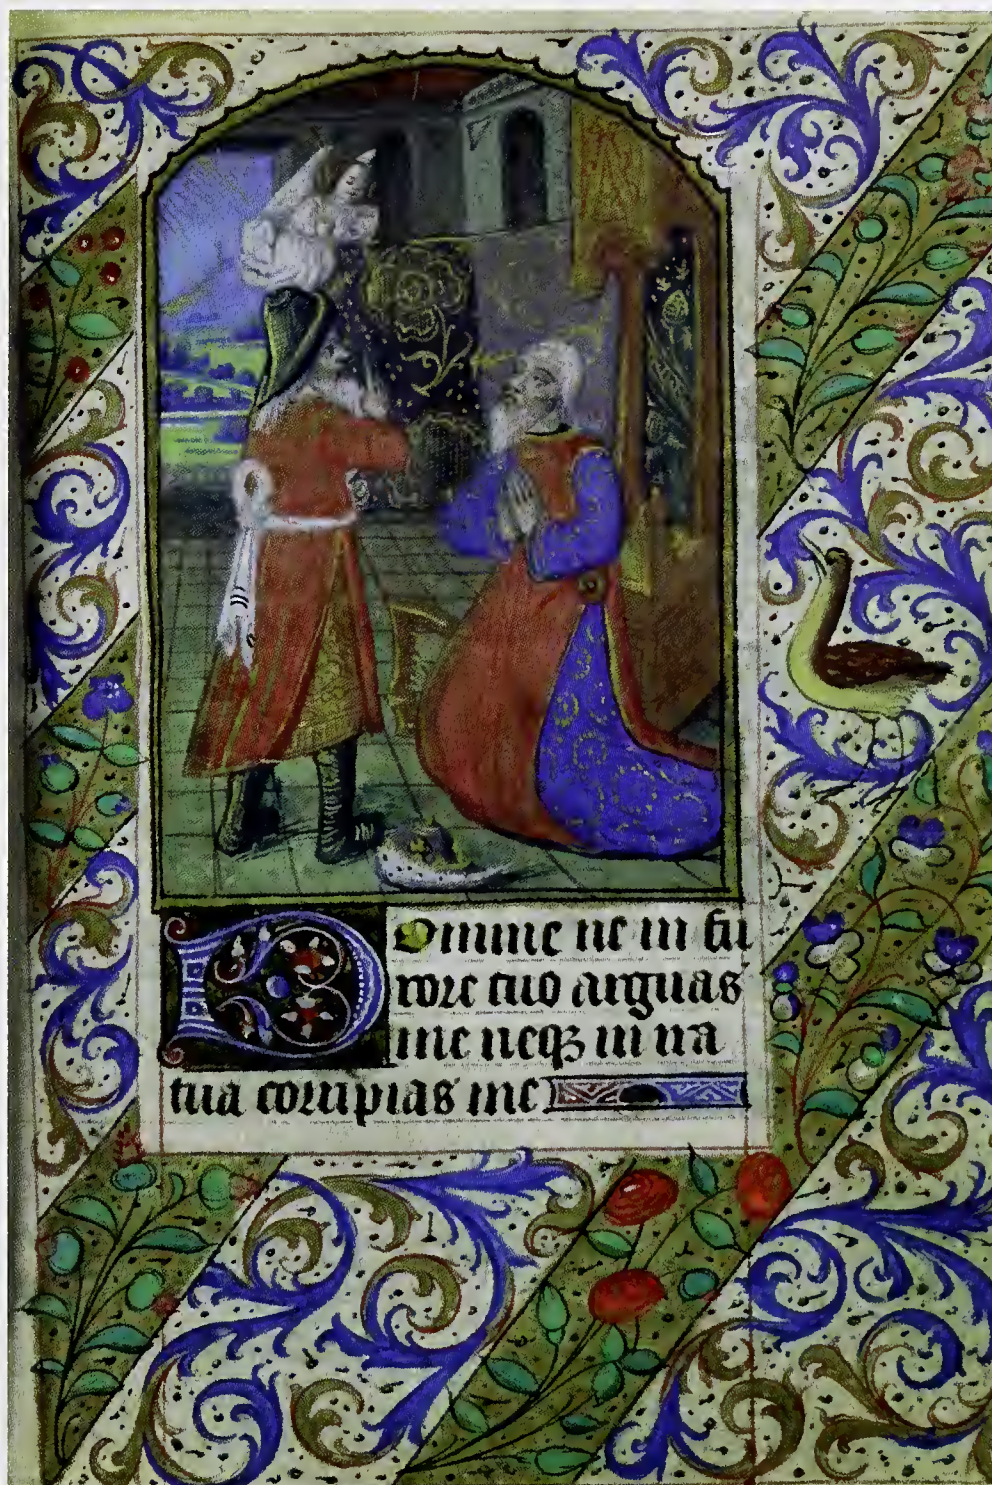 Domine ne in fu
rore tuo arguas
me neqꝫ in ira
tua corripias me